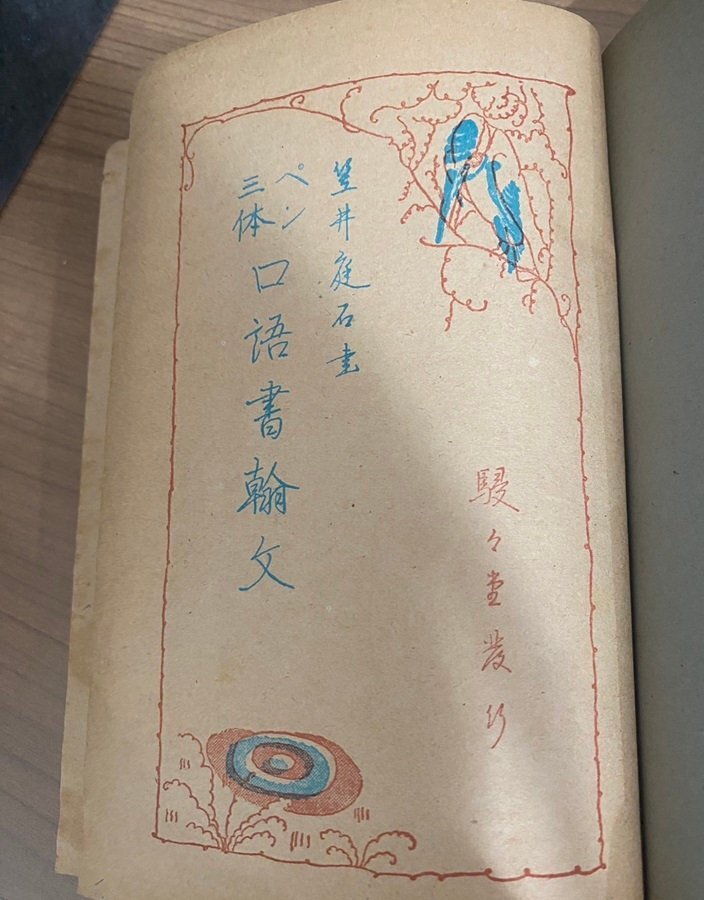 駸々堂發行
笠井庭石書
ペン
三体
口語書翰文